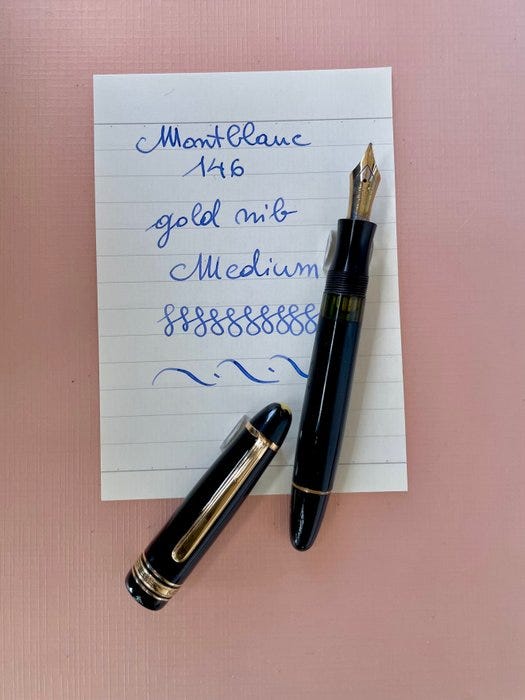 Montblanc
146
gold nib
Medium